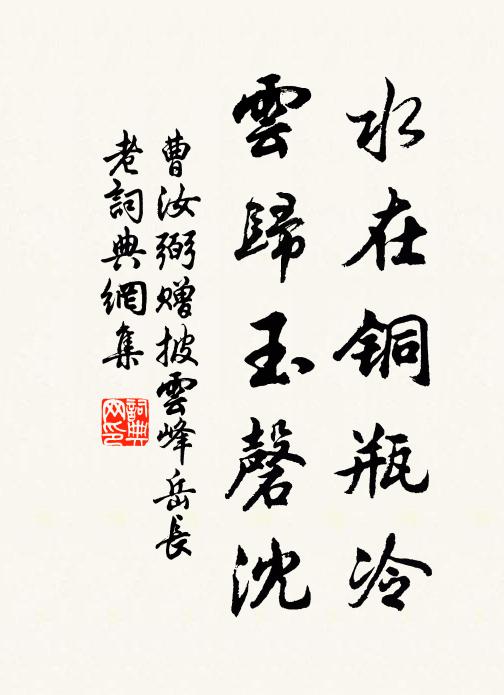 水在銅瓶冷
雲歸玉磬沈
曹汝弼贈披雲峰岳長
老詞典網集
詞典網印